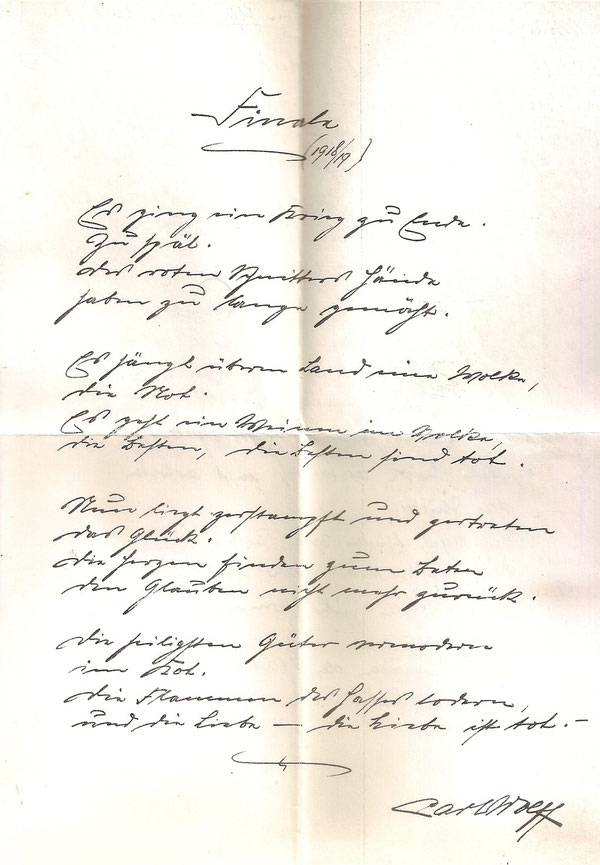 Finale
(1918/19)
Es ging ein Krieg zu Ende.
Zu spät.
Des roten Schnitters Hände
haben zu lange gemäht.
Es hängt überm Land eine Wolke,
die Not.
Es geht ein Weinen im Volke,
die Besten, die Besten sind tot.
Nun liegt zerstampft und zertreten
das Glück.
Die Herzen finden zum Beten
den Glauben nicht mehr zurück.
Die heiligsten Güter vermodern
im Kot.
Die Flammen des Hasses lodern,
und die Liebe – die Liebe ist tot. –
Carl Wolff